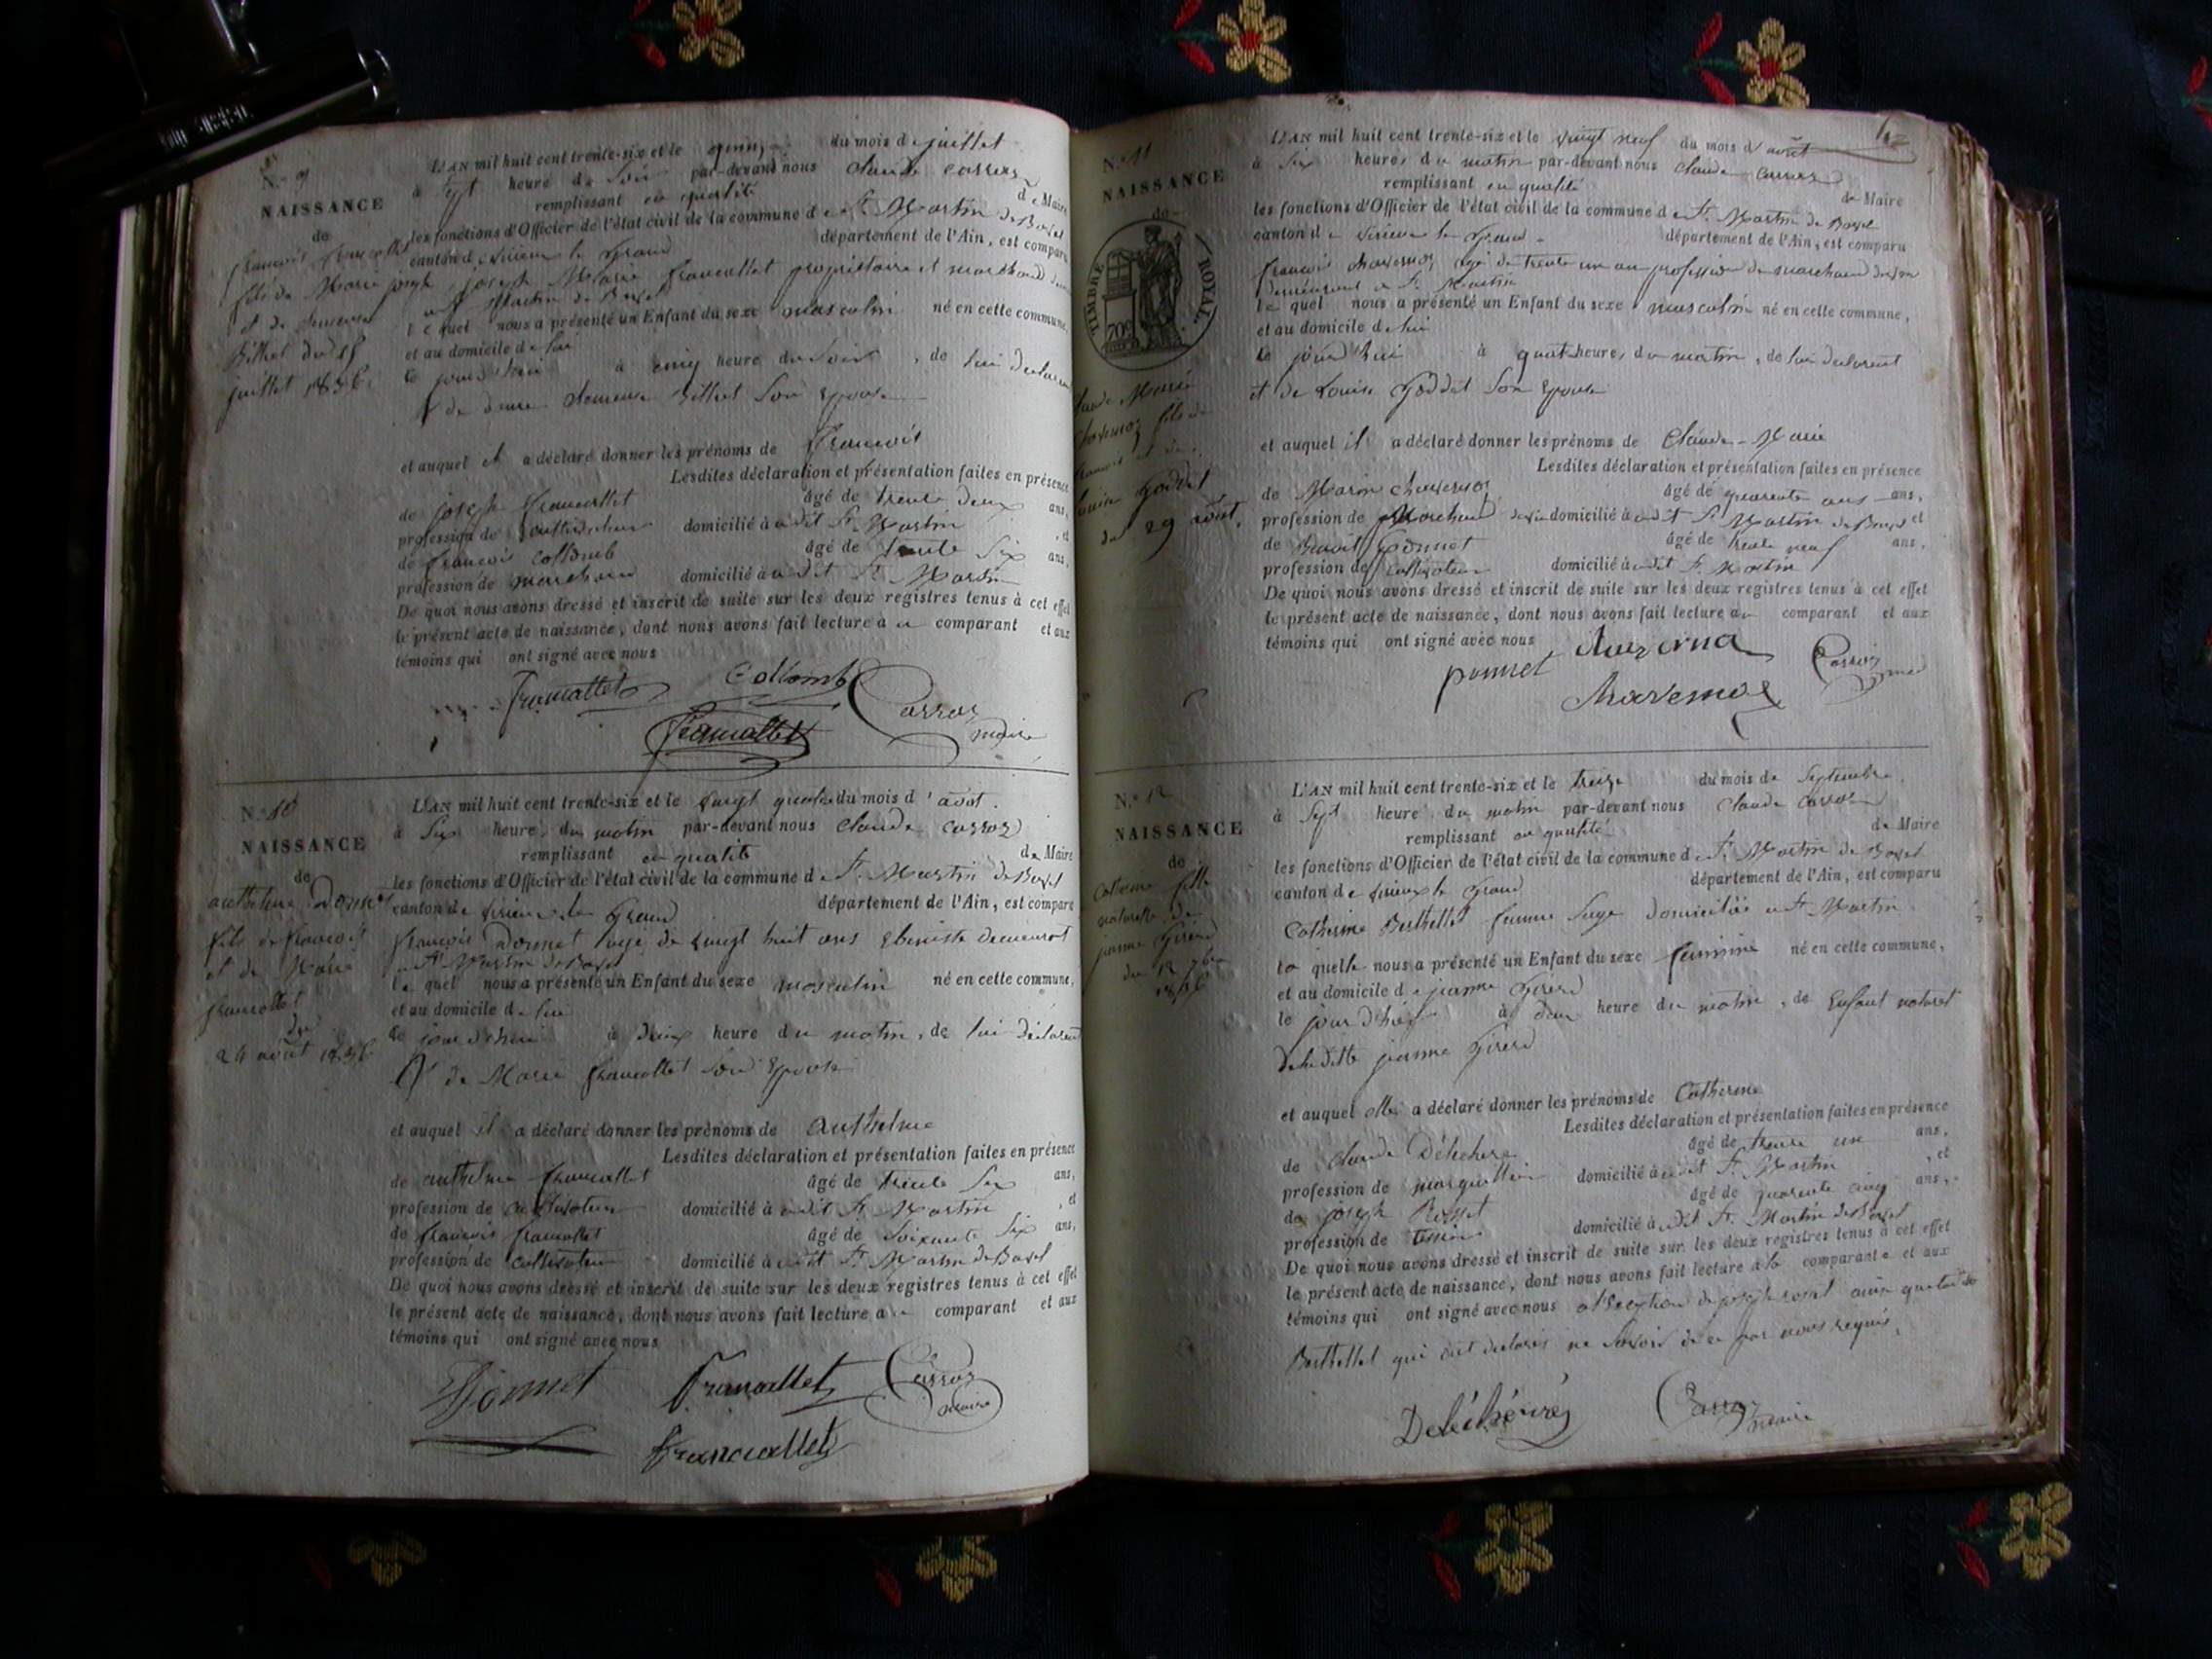 N.° 9
NAISSANCE
de
françois francallet
fils de Marie joseph
et de
Billiet du 15
juillet 1836
L'AN mil huit cent trente-six et le quinze du mois de juillet
à sept heure du soir par-devant nous claude carroz
remplissant en qualité de Maire
les fonctions d'Officier de l'état civil de la commune de St. Martin de Bavel
canton de virieux le Grand département de l'Ain, est comparu
joseph Marie francallet propriétaire et marchand
à St Martin de Bavel
le quel nous a présenté un Enfant du sexe masculin né en cette commune,
et au domicile de lui
le jourd'hui à cinq heure du soir, de lui déclarant
et de Billiet son Epouse
et auquel il a déclaré donner les prénoms de françois
Lesdites déclaration et présentation faites en présence
de joseph francallet âgé de trente deux ans,
profession de cultivateur domicilié à udit St. Martin, et
de françois collomb âgé de trente six ans,
profession de marchand domicilié à udit St. Martin
De quoi nous avons dressé et inscrit de suite sur les deux registres tenus à cet effet
le présent acte de naissance, dont nous avons fait lecture à u comparant et aux
témoins qui ont signé avec nous
francallet Collomb Carroz
francallet maire
N.° 10
NAISSANCE
de
anthelme Donnet
fils de françois
et de Marie
francallet
du
24 août 1836
L'AN mil huit cent trente-six et le vingt quatre du mois d'août.
à six heure du matin par-devant nous claude carroz
remplissant en qualité de Maire
les fonctions d'Officier de l'état civil de la commune de St. Martin de Bavel
canton de virieux le Grand département de l'Ain, est comparu
françois Donnet âgé de vingt huit ans Ebeniste demeurant
à St Martin de Bavel
le quel nous a présenté un Enfant du sexe masculin né en cette commune,
et au domicile de lui
le jourd'hui à deux heure du matin, de lui déclarant
Et de Marie francallet son Epouse
et auquel il a déclaré donner les prénoms de anthelme
Lesdites déclaration et présentation faites en présence
de anthelme francallet âgé de trente six ans,
profession de cultivateur domicilié à udit St. Martin, et
de françois francallet âgé de soixante six ans,
profession de cultivateur domicilié à udit St. Martin de Bavel
De quoi nous avons dressé et inscrit de suite sur les deux registres tenus à cet effet
le présent acte de naissance, dont nous avons fait lecture a u comparant et aux
témoins qui ont signé avec nous
Donnet francallet Carroz
maire
francallet
N.° 11
NAISSANCE
de
TIMBRE ROYAL.
70c
claude Marie
fils de
françois et de
Louise Goddet
du 29 août.
L'AN mil huit cent trente-six et le vingt neuf du mois d'août
à six heures du matin par-devant nous claude carroz
remplissant en qualité de Maire
les fonctions d'Officier de l'état civil de la commune de St. Martin de Bavel
canton de virieux le Grand département de l'Ain, est comparu
françois âgé de trente un an profession de marchand
demeurant à St. Martin
le quel nous a présenté un Enfant du sexe masculin né en cette commune,
et au domicile de lui
le jourd'hui à quatre heures du matin, de lui déclarant
et de Louise Goddet son Epouse
et auquel il a déclaré donner les prénoms de Claude-Marie
Lesdites déclaration et présentation faites en présence
de Marin âgé de quarente ans ans,
profession de Marchand domicilié à udit St Martin de Bavel et
de Benoit ponnet âgé de trente neuf ans,
profession de cultivateur domicilié à udit St. Martin
De quoi nous avons dressé et inscrit de suite sur les deux registres tenus à cet effet
le présent acte de naissance, dont nous avons fait lecture au comparant et aux
témoins qui ont signé avec nous
ponnet Carroz
maire
N.° 12
NAISSANCE
de
Catherine fille
naturelle de
jeanne Girerd
du 12 7bre
1836
L'AN mil huit cent trente-six et le treize du mois de Septembre
à sept heure du matin par-devant nous claude carroz
remplissant en qualité de Maire
les fonctions d'Officier de l'état civil de la commune de St. Martin de Bavel
canton de virieux le Grand département de l'Ain, est comparu
Catherine Berthellet femme sage domiciliée à St. Martin
la quelle nous a présenté un Enfant du sexe feminin né en cette commune,
et au domicile de jeanne Girerd
le jour d'hier à deux heure du matin, de Enfant naturel
de ladite jeanne Girerd
et auquel elle a déclaré donner les prénoms de Catherine
Lesdites déclaration et présentation faites en présence
de claude âgé de trente un ans,
profession de marguillier domicilié à udit St. Martin, et
de joseph Rosset âgé de quarente cinq ans,
profession de domicilié à udit St. Martin de Bavel
De quoi nous avons dressé et inscrit de suite sur les deux registres tenus à cet effet
le présent acte de naissance, dont nous avons fait lecture à la comparante et aux
témoins qui ont signé avec nous a l'exception de joseph rosset ainsi que ladite
Berthellet qui ont declarés ne savoir de ce par nous requis.
Carroz
maire